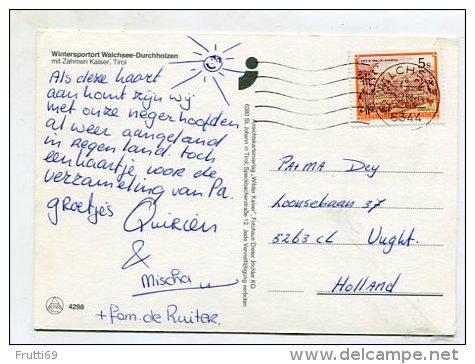 Wintersportort Walchsee-Durchholzen
mit Zahmen Kaiser, Tirol
Als deze kaart
aankomt zijn wij
met onze negerhoofden
al weer aangeland
in regenland. toch
een kaartje voor de
verzameling van Pa.
groetjes Quirien
&
Mischa
+ fam. de Ruiter.
4298
Ansichtskartenverlag „Wilder Kaiser“, Fotohaus Dieter Jöchler KG
6380 St. Johann in Tirol, Speckbacherstraße 12 Jede Vervielfältigung verboten
5s
6344
PAtMA Dey
Loonsebaan 37
5263 CL Vught.
Holland
Frutti69
http://www.delcampe.net